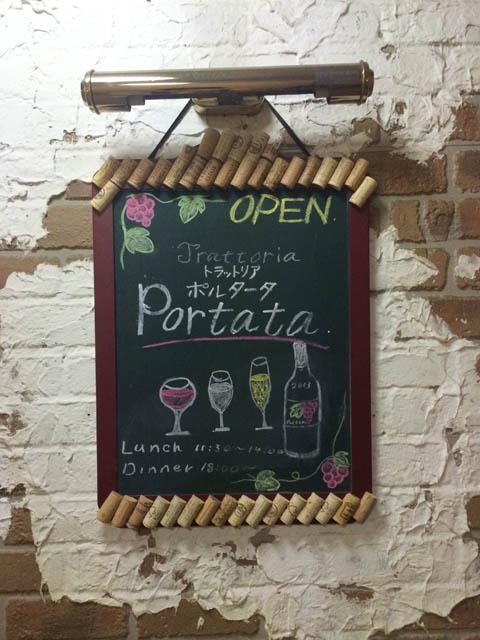 OPEN
Trattoria
トラットリア
ポルタータ
Portata.
2013
Lunch 11:30~14:00
Dinner 18:00~